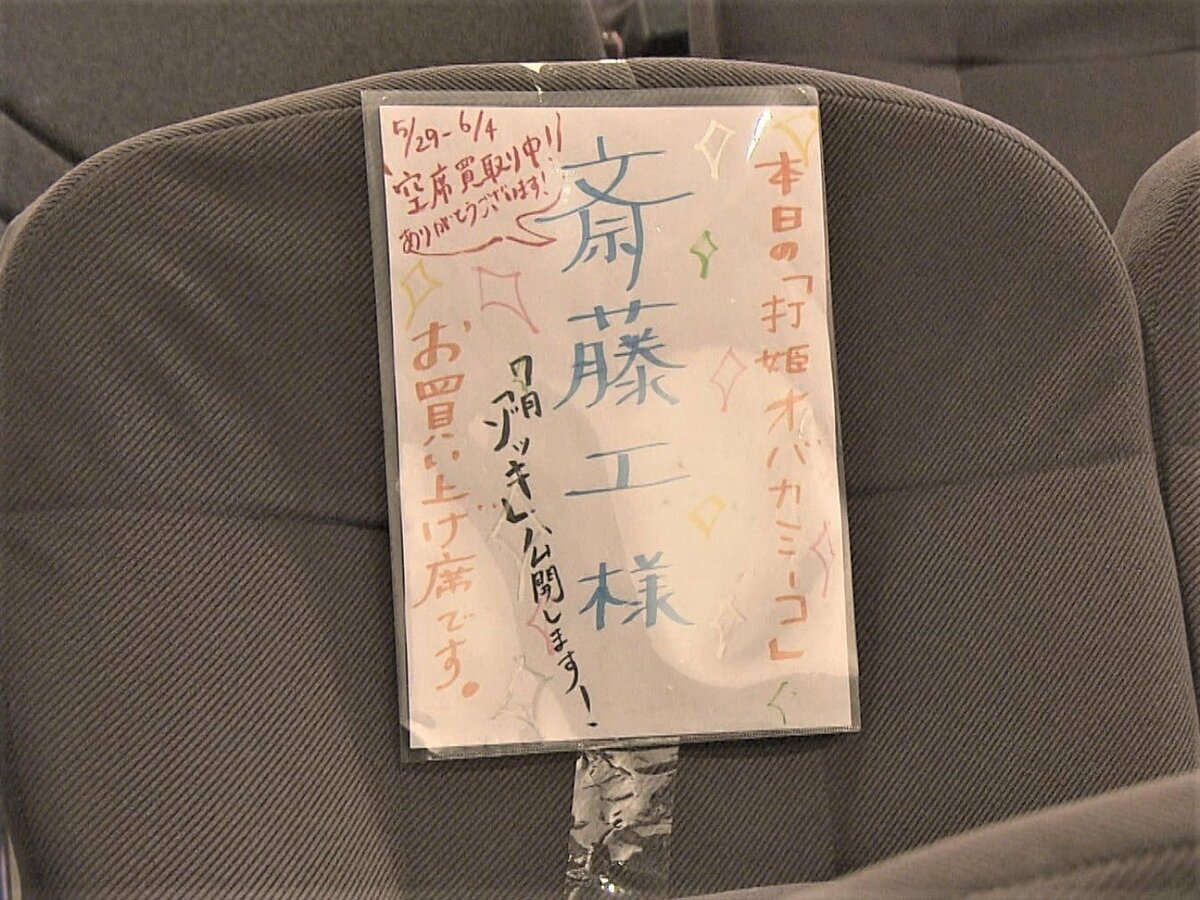 本日の「打姫オバカミーコ」
斎藤工様
7月
「ゾッキ」公開します!
お買い上げ席です。
5/29-6/4
空席買取り中!!
ありがとうございます!